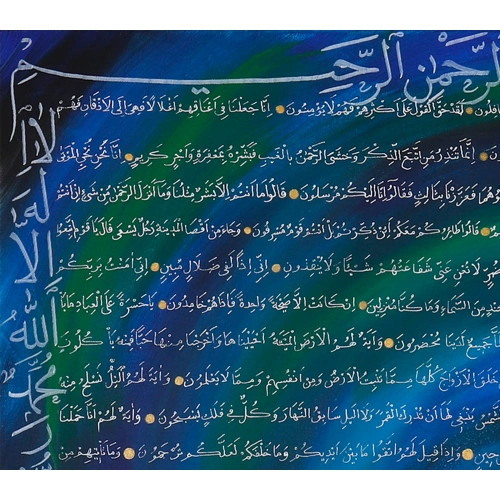 الرَّحْمٰنِ الرَّحِيمِ
لَقَدْ حَقَّ الْقَوْلُ عَلَى أَكْثَرِهِمْ فَهُمْ لَا يُؤْمِنُونَ إِنَّا جَعَلْنَا فِي أَعْنَاقِهِمْ أَغْلَالًا فَهِيَ إِلَى الْأَذْقَانِ فَهُمْ
إِنَّمَا تُنْذِرُ مَنِ اتَّبَعَ الذِّكْرَ وَخَشِيَ الرَّحْمٰنَ بِالْغَيْبِ فَبَشِّرْهُ بِمَغْفِرَةٍ وَأَجْرٍ كَرِيمٍ إِنَّا نَحْنُ نُحْيِ الْمَوْتَى
فَعَزَّزْنَا بِثَالِثٍ فَقَالُوا إِنَّا إِلَيْكُمْ مُرْسَلُونَ قَالُوا مَا أَنْتُمْ إِلَّا بَشَرٌ مِثْلُنَا وَمَا أَنْزَلَ الرَّحْمٰنُ مِنْ شَيْءٍ إِنْ أَنْتُمْ
قَالُوا طَائِرُكُمْ مَعَكُمْ أَئِنْ ذُكِّرْتُمْ بَلْ أَنْتُمْ قَوْمٌ مُسْرِفُونَ وَجَاءَ مِنْ أَقْصَا الْمَدِينَةِ رَجُلٌ يَسْعَى قَالَ يَا قَوْمِ اتَّبِعُوا
لَا تُغْنِ عَنِّي شَفَاعَتُهُمْ شَيْئًا وَلَا يُنْقِذُونِ إِنِّي إِذًا لَفِي ضَلَالٍ مُبِينٍ إِنِّي آمَنْتُ بِرَبِّكُمْ
مِنَ السَّمَاءِ وَمَا كُنَّا مُنْزِلِينَ إِنْ كَانَتْ إِلَّا صَيْحَةً وَاحِدَةً فَإِذَا هُمْ خَامِدُونَ يَا حَسْرَةً عَلَى الْعِبَادِ مَا يَأْ
جَمِيعٌ لَدَيْنَا مُحْضَرُونَ وَآيَةٌ لَهُمُ الْأَرْضُ الْمَيْتَةُ أَحْيَيْنَاهَا وَأَخْرَجْنَا مِنْهَا حَبًّا فَمِنْهُ يَأْكُلُونَ
خَلَقَ الْأَزْوَاجَ كُلَّهَا مِمَّا تُنْبِتُ الْأَرْضُ وَمِنْ أَنْفُسِهِمْ وَمِمَّا لَا يَعْلَمُونَ وَآيَةٌ لَهُمُ اللَّيْلُ نَسْلَخُ مِنْهُ
يَنْبَغِي لَهَا أَنْ تُدْرِكَ الْقَمَرَ وَلَا اللَّيْلُ سَابِقُ النَّهَارِ وَكُلٌّ فِي فَلَكٍ يَسْبَحُونَ وَآيَةٌ لَهُمْ أَنَّا حَمَلْنَا
وَإِذَا قِيلَ لَهُمُ اتَّقُوا مَا بَيْنَ أَيْدِيكُمْ وَمَا خَلْفَكُمْ لَعَلَّكُمْ تُرْحَمُونَ وَمَا تَأْتِيهِمْ مِنْ
لَا إِلٰهَ إِلَّا اللّٰهُ مُحَمَّدٌ